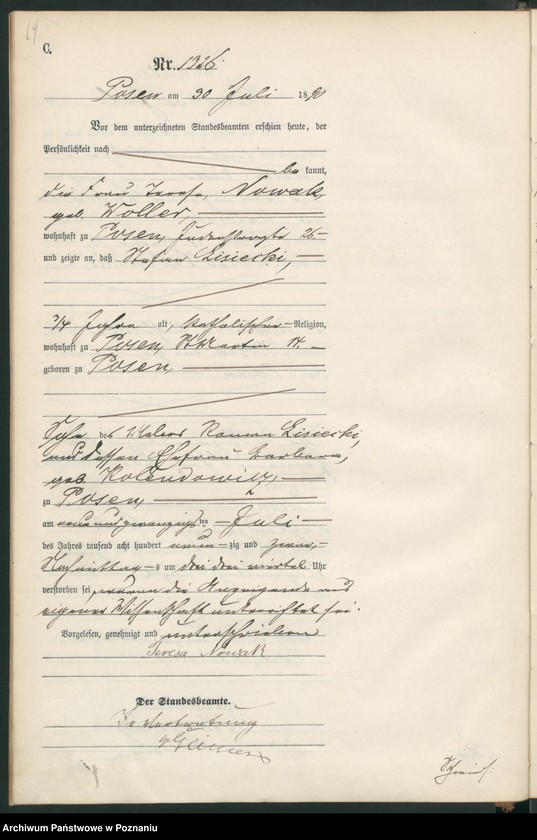 C.
Nr. 1326
Posen am 30 Juli 189
Vor dem unterzeichneten Standesbeamten erschien heute, der
Persönlichkeit nach
be kannt,
die Frau Nowak,
geb. Woller,
wohnhaft zu Posen, 26
und zeigte an, daß Stefan Lisiecki,
3/4 Jahre alt, katholischer Religion,
wohnhaft zu Posen, St Martin 14.
geboren zu Posen,
Sohn des Malers Roman Lisiecki,
und dessen Ehefrau Barbara,
geb. Kolendowicz,
zu Posen,
am neunundzwanzigsten Juli
des Jahres tausend acht hundert neun zig und
Nachmittags um drei drei viertel Uhr
verstorben sei, die Anzeigende aus
eigener Wissenschaft unterrichtet sei.
Vorgelesen, genehmigt und unterschrieben
Teresa Nowak
Der Standesbeamte.
In Vertretung
Archiwum Państwowe w Poznaniu